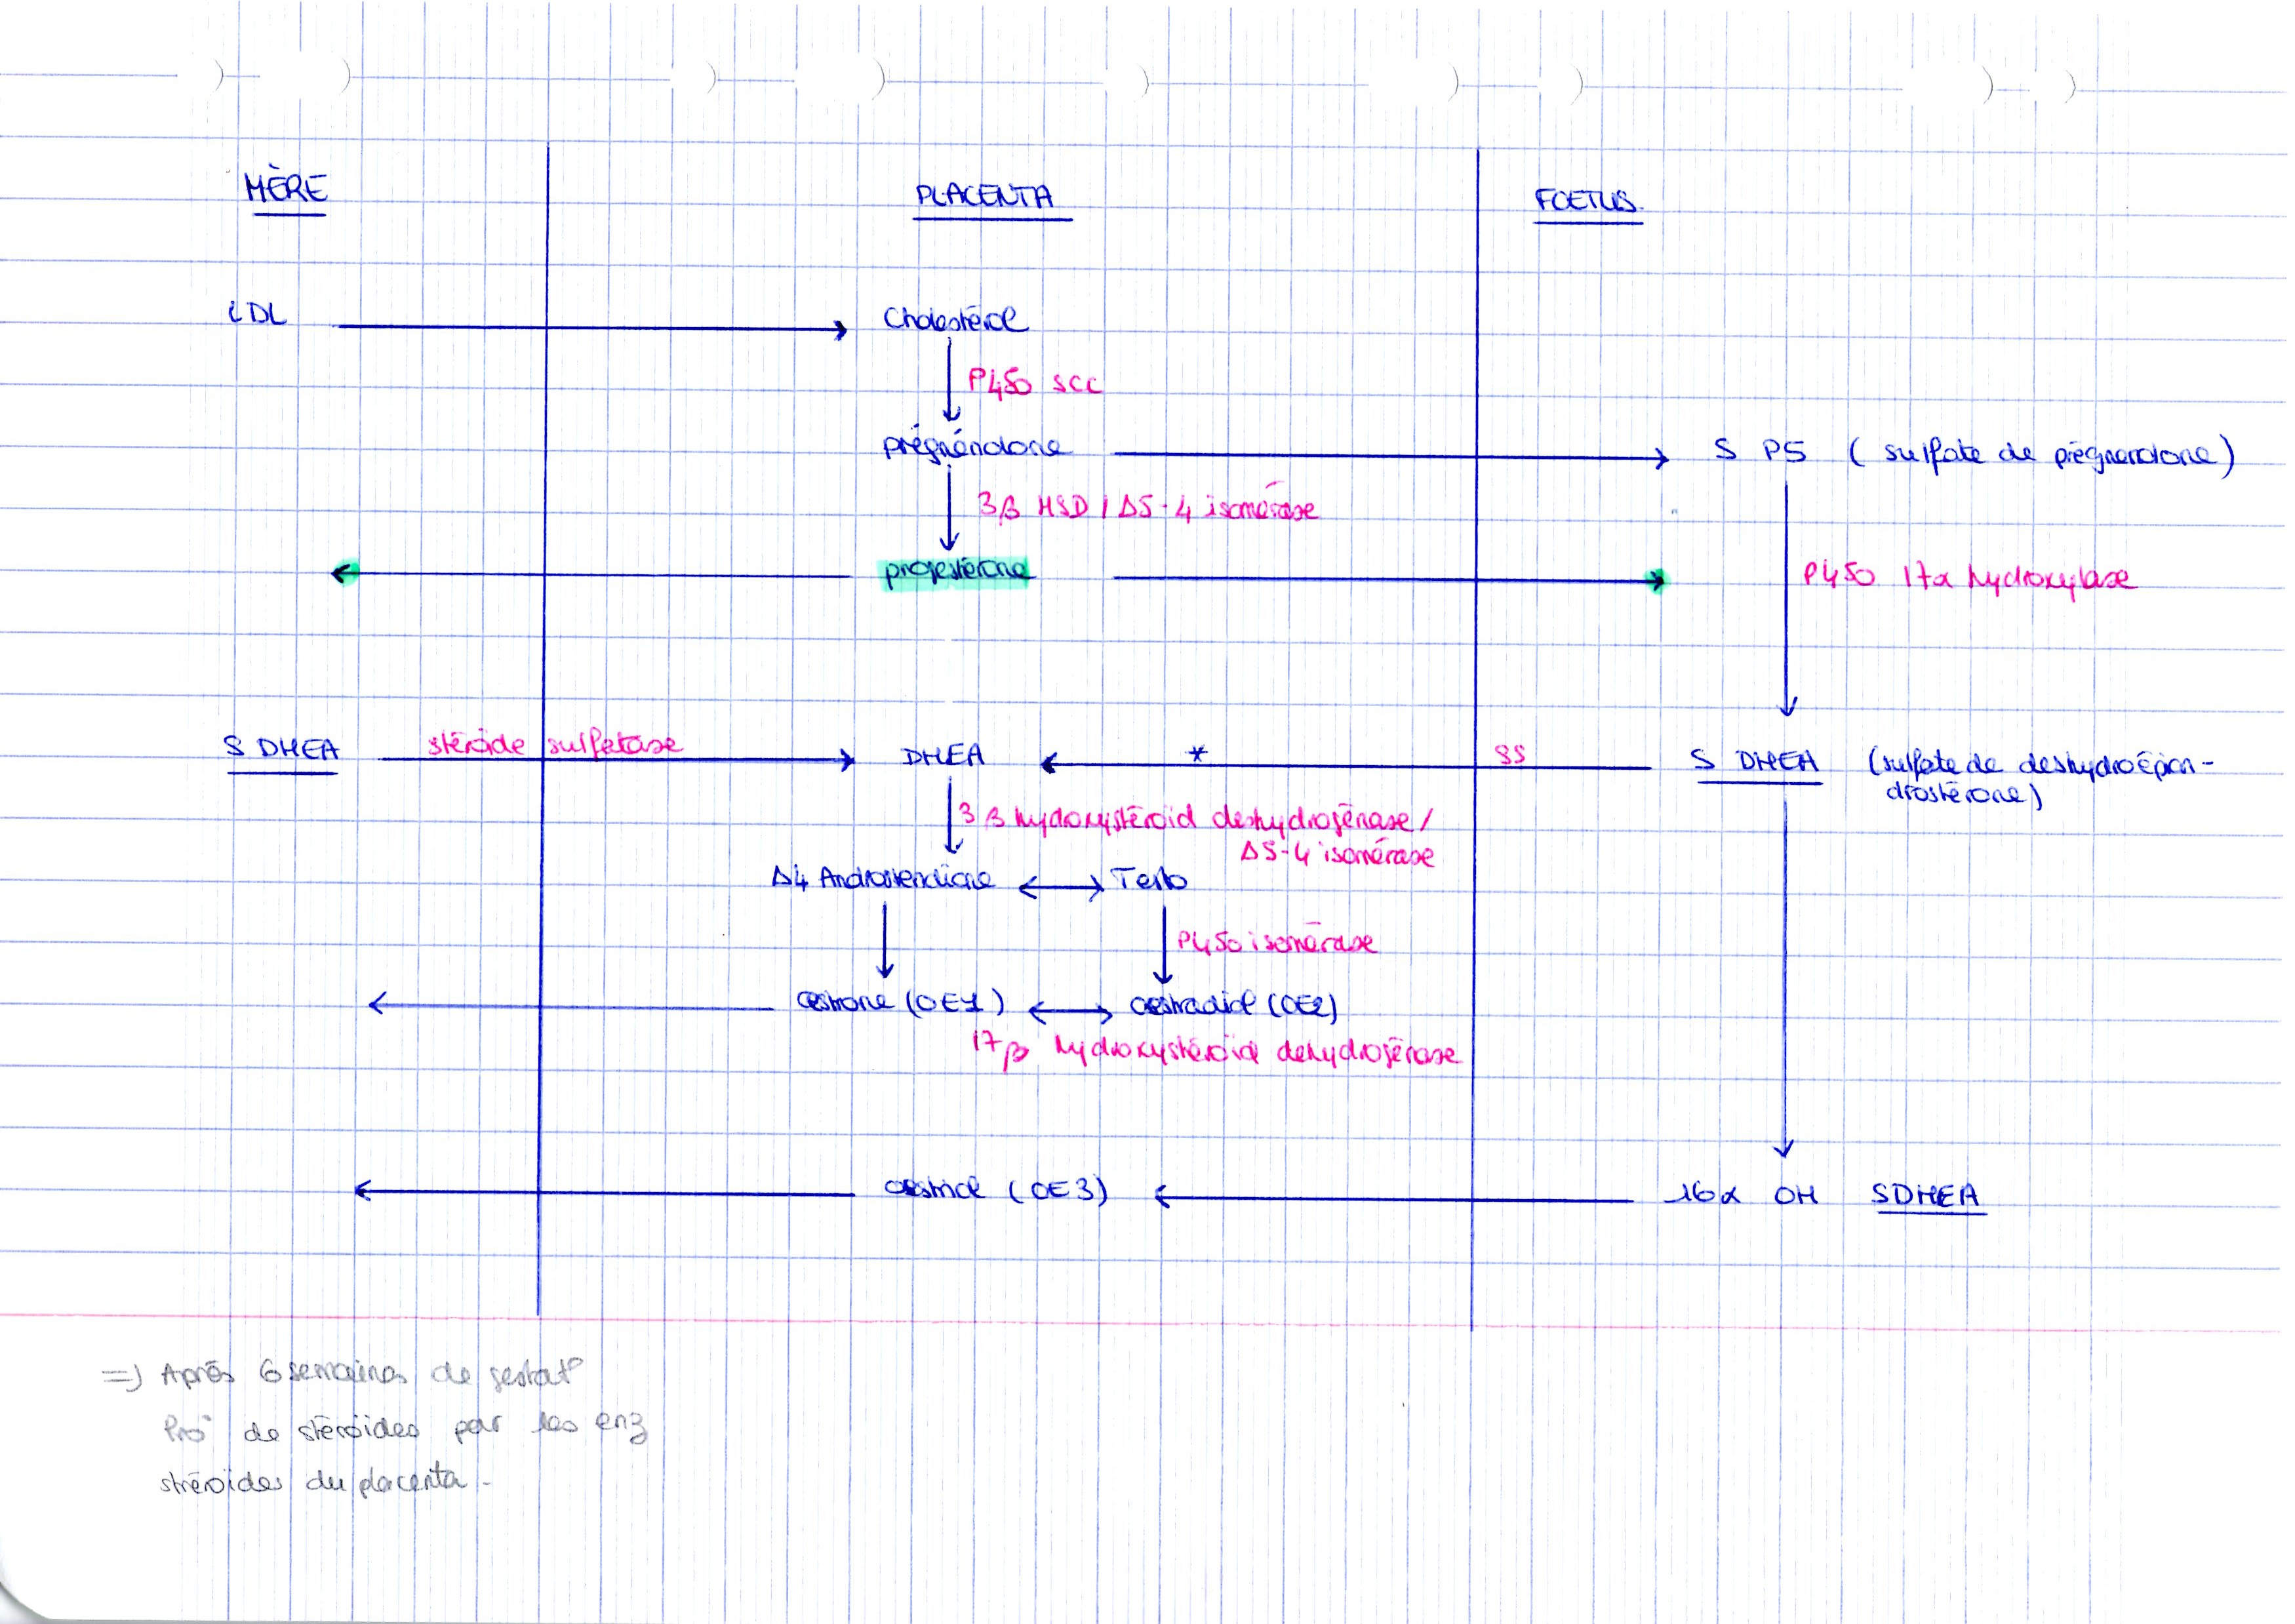 MÈRE PLACENTA FOETUS
LDL Cholestérol
P450 scc
prégnénolone S P5 ( sulfate de prégnenolone)
3β HSD / Δ5-4 isomérase
progestérone P450 17α hydroxylase
S DHEA stéroïde sulfatase DHEA * SS S DHEA (sulfate de deshydroépian-
drostérone)
3 β hydroxystéroïd deshydrogénase /
Δ5-4 isomérase
Δ4 Androstendione Testo
P450 isomérase
oestrone (OE1) oestradiol (OE2)
17β hydroxystéroïd dehydrogénase
oestriol (OE3) 16α OH SDHEA
=> Après 6 semaines de gestat°
Pro° de stéroïdes par les enz
stéroïdes du placenta.